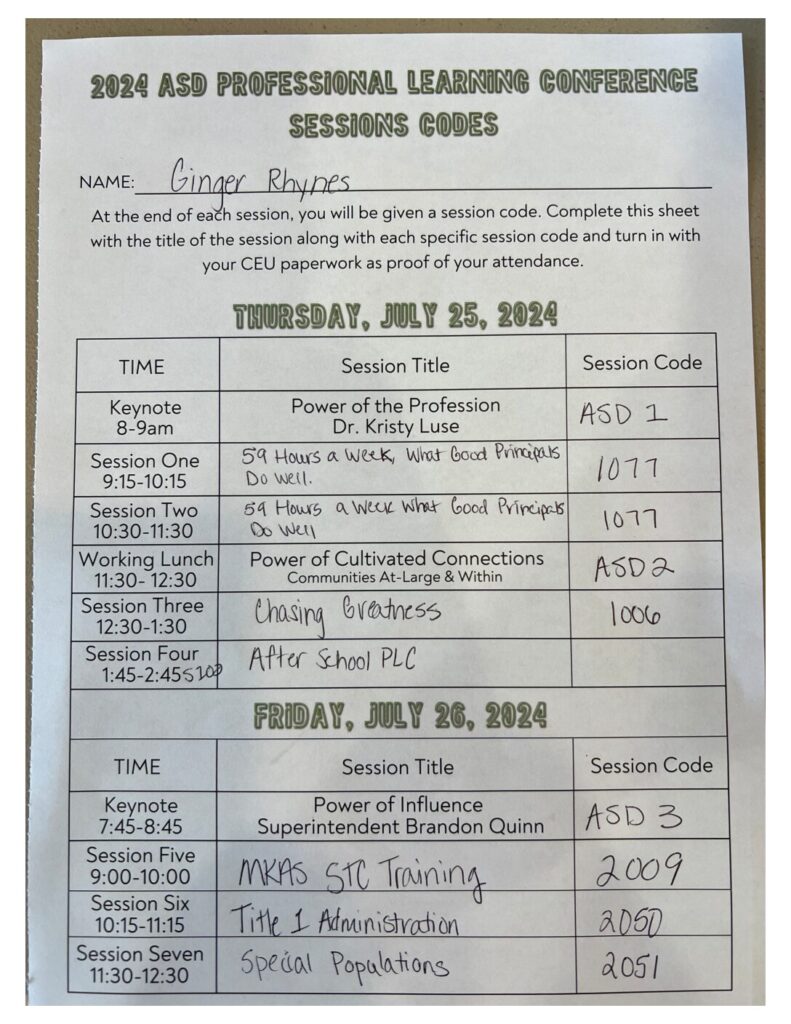 2024 ASD PROFESSIONAL LEARNING CONFERENCE
SESSIONS CODES
NAME: Ginger Rhynes
At the end of each session, you will be given a session code. Complete this sheet
with the title of the session along with each specific session code and turn in with
your CEU paperwork as proof of your attendance.
THURSDAY, JULY 25, 2024
TIME Session Title Session Code
Keynote Power of the Profession ASD 1
8-9am Dr. Kristy Luse
Session One 59 Hours a Week, What Good Principals 1077
9:15-10:15 Do Well.
Session Two 59 Hours a Week What Good Principals 1077
10:30-11:30 Do Well
Working Lunch Power of Cultivated Connections ASD 2
11:30- 12:30 Communities At-Large & Within
Session Three Chasing Greatness 1006
12:30-1:30
Session Four After School PLC
1:45-2:45
FRIDAY, JULY 26, 2024
TIME Session Title Session Code
Keynote Power of Influence ASD 3
7:45-8:45 Superintendent Brandon Quinn
Session Five MKAS STC Training 2009
9:00-10:00
Session Six Title 1 Administration 2050
10:15-11:15
Session Seven Special Populations 2051
11:30-12:30